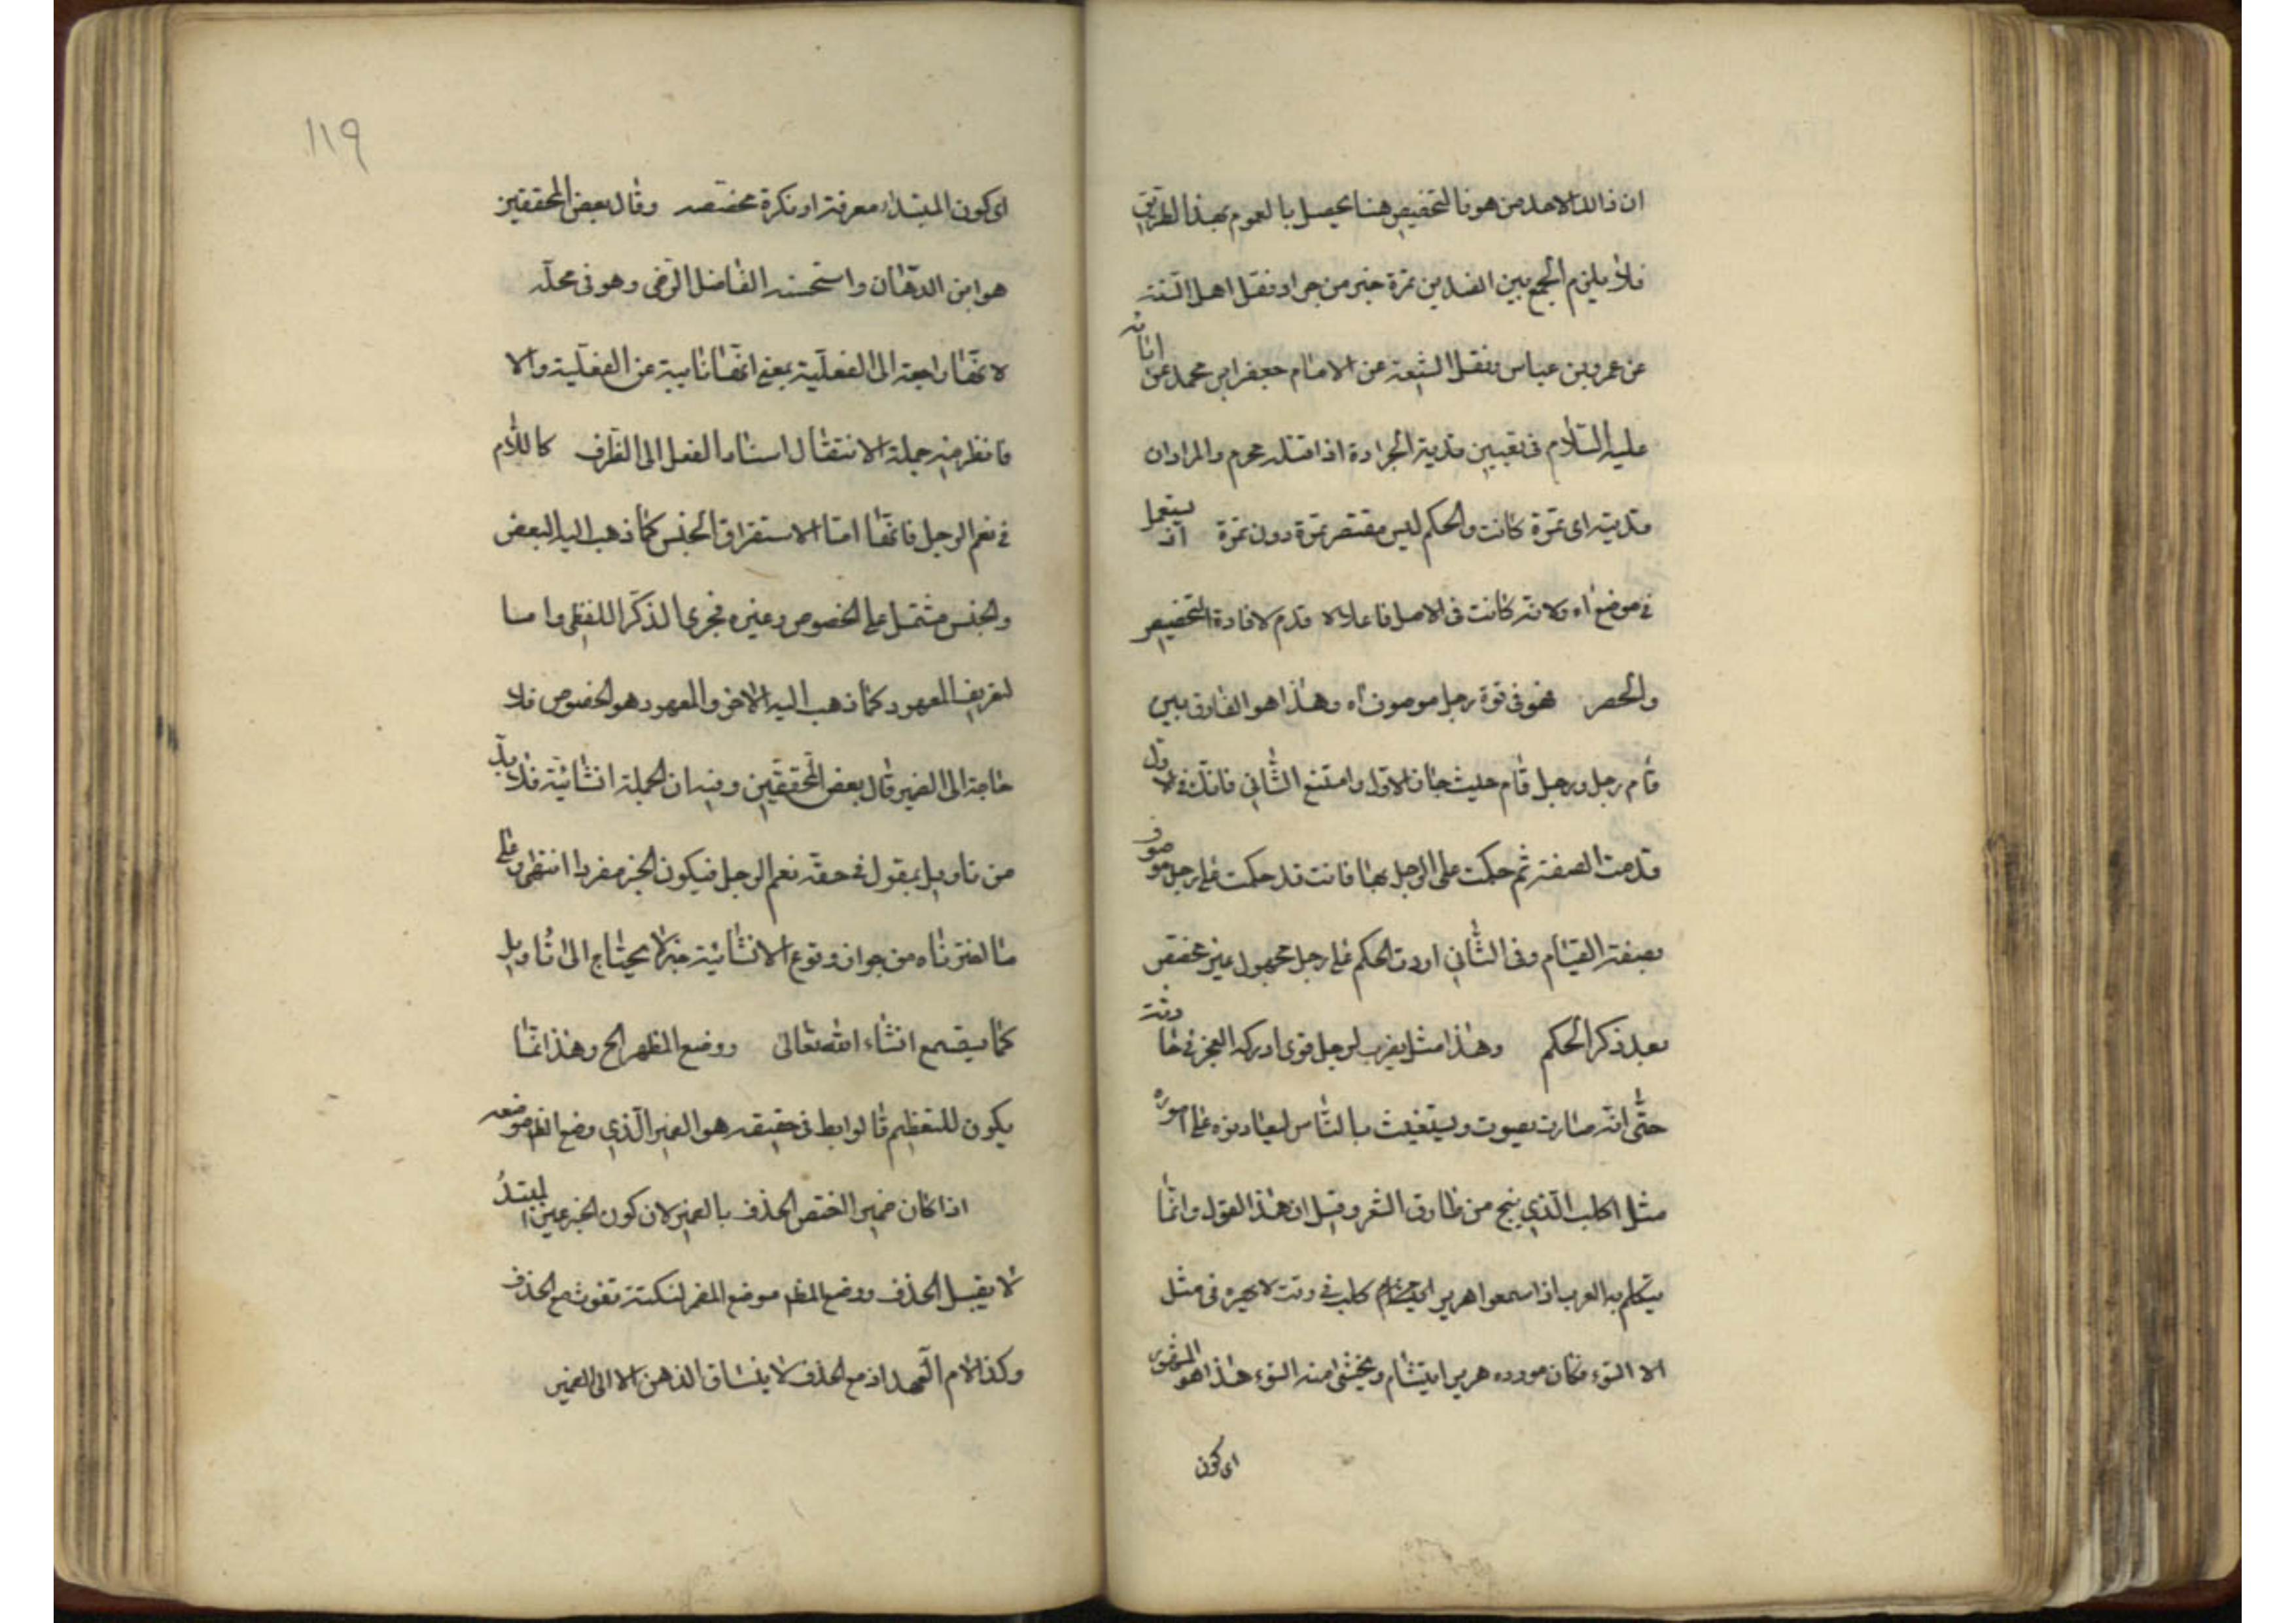 ان ذالك الاحد من هو فالتخصيص هنا يحصل بالعموم بهذا الطريق
فلا يلزم الجمع بين الضدين تمرة خير من جرادة نقل اهل السنة
عن عمرو بن عباس ونقل الشيعة عن الامام جعفر ابن محمد عن
عليه السلام في تعيين فدية الجرادة اذا قتله محرم والمراد ان
فديته اى تمرة كانت والحكم ليس مقتصر بتمرة دون تمرة اذ يستعمل
في موضع اه ولانه كانت في الاصل فاعلا قدم لافادة التخصيص
والحصر فهو في قوة رجل موصوف اه وهذا هو الفارق بين
قام رجل ورجل قام حيث جاز الاول وامتنع الثاني فانك في الاول
قدمت الصفة ثم حكمت على الرجل بها فانت قد حكمت على رجل موصوف
بصفة القيام وفي الثاني اردت الحكم على رجل مجهول غير مختص
بعد ذكر الحكم وهذا مثل يضرب لرجل قوى ادركه العجز في حادثة
حتى انه صارت بصوت ويستغيث بالناس ليعاونوه على اموره
مثل الكلب الذي ينبح من طارق الشر وقيل ان هذا القول وانما
يتكلم به العرب اذا سمعوا هرير كلب في وقت لا يهره في مثل
الا السوء فكان مورده هرير ايتشام ويخشى منه السوء هذا هو المشهور
اى كون
١١٩
اى كون المبتداء معرفة او نكرة مختصه وقال بعض المحققين
هو ابن الدهان واستحسنه الفاضل الرضى وهو في محله
لانها راجعة الى الفعلية بمعنى انها نايبة عن الفعلية والا
فانظر فيه جملة الانتقال اسناد الفعل الى الظرف كاللام
في نعم الرجل فانها اما الاستقراق الجنس كما ذهب اليه البعض
والجنس مشتمل على الخصوص وغيره فجرى الذكر اللفظى واما
لتعريف المعهود كما ذهب اليه الاخر والمعهود هو الخصوص فلا
حاجة الى الضمير قال بعض المحققين وفيه ان الجملة انشائية فلا بد
من تاويل بمقول في حقه نعم الرجل فيكون الخبر مفردا انتهى وعلى
ما اخترناه من جواز وقوع الانشائية خبرا لا يحتاج الى تاويل
كما سيقسمع انشاء الله تعالى ووضع المظهر الخ وهذا انما
يكون للتعظيم فالرابط في حقيقه هو الضمير الذي وضع الظم موضعه
اذا كان ضمير اختص الحذف بالضمير لان كون الخبر عين المبتدأ
لا يقبل الحذف ووضع المظهر موضع المضمر لنكتة تفوت مع الحذف
وكذا لام العهد اذ مع الحذف لا ينساق الذهن الا الى الضمير